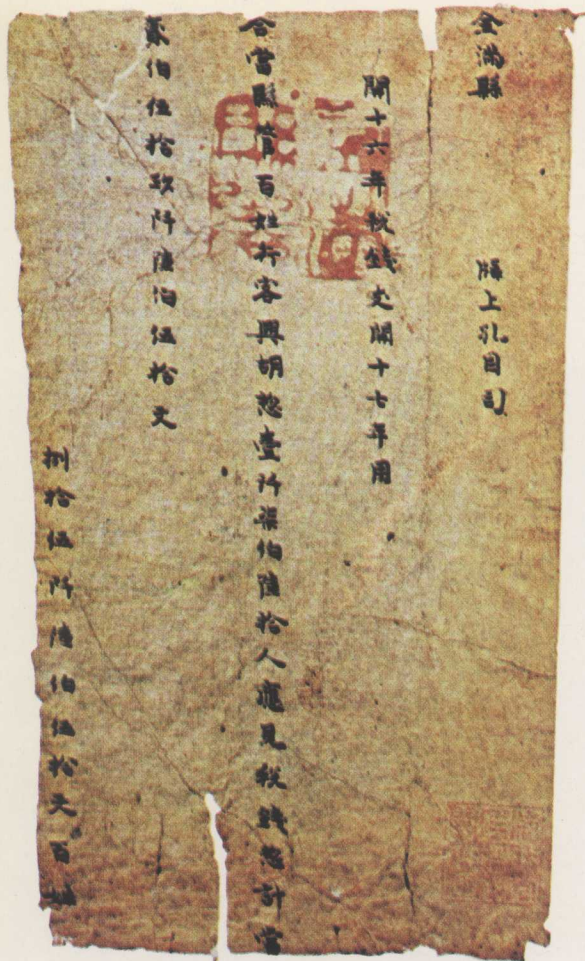 金滿縣
牒上孔目司
開十六年稅錢支開十七年用
合當縣管百姓行客興胡惣壹阡柒伯陸拾人應見稅錢惣計當
貳伯伍拾玖阡陸伯伍拾文
捌拾伍阡陸伯伍拾文百姓